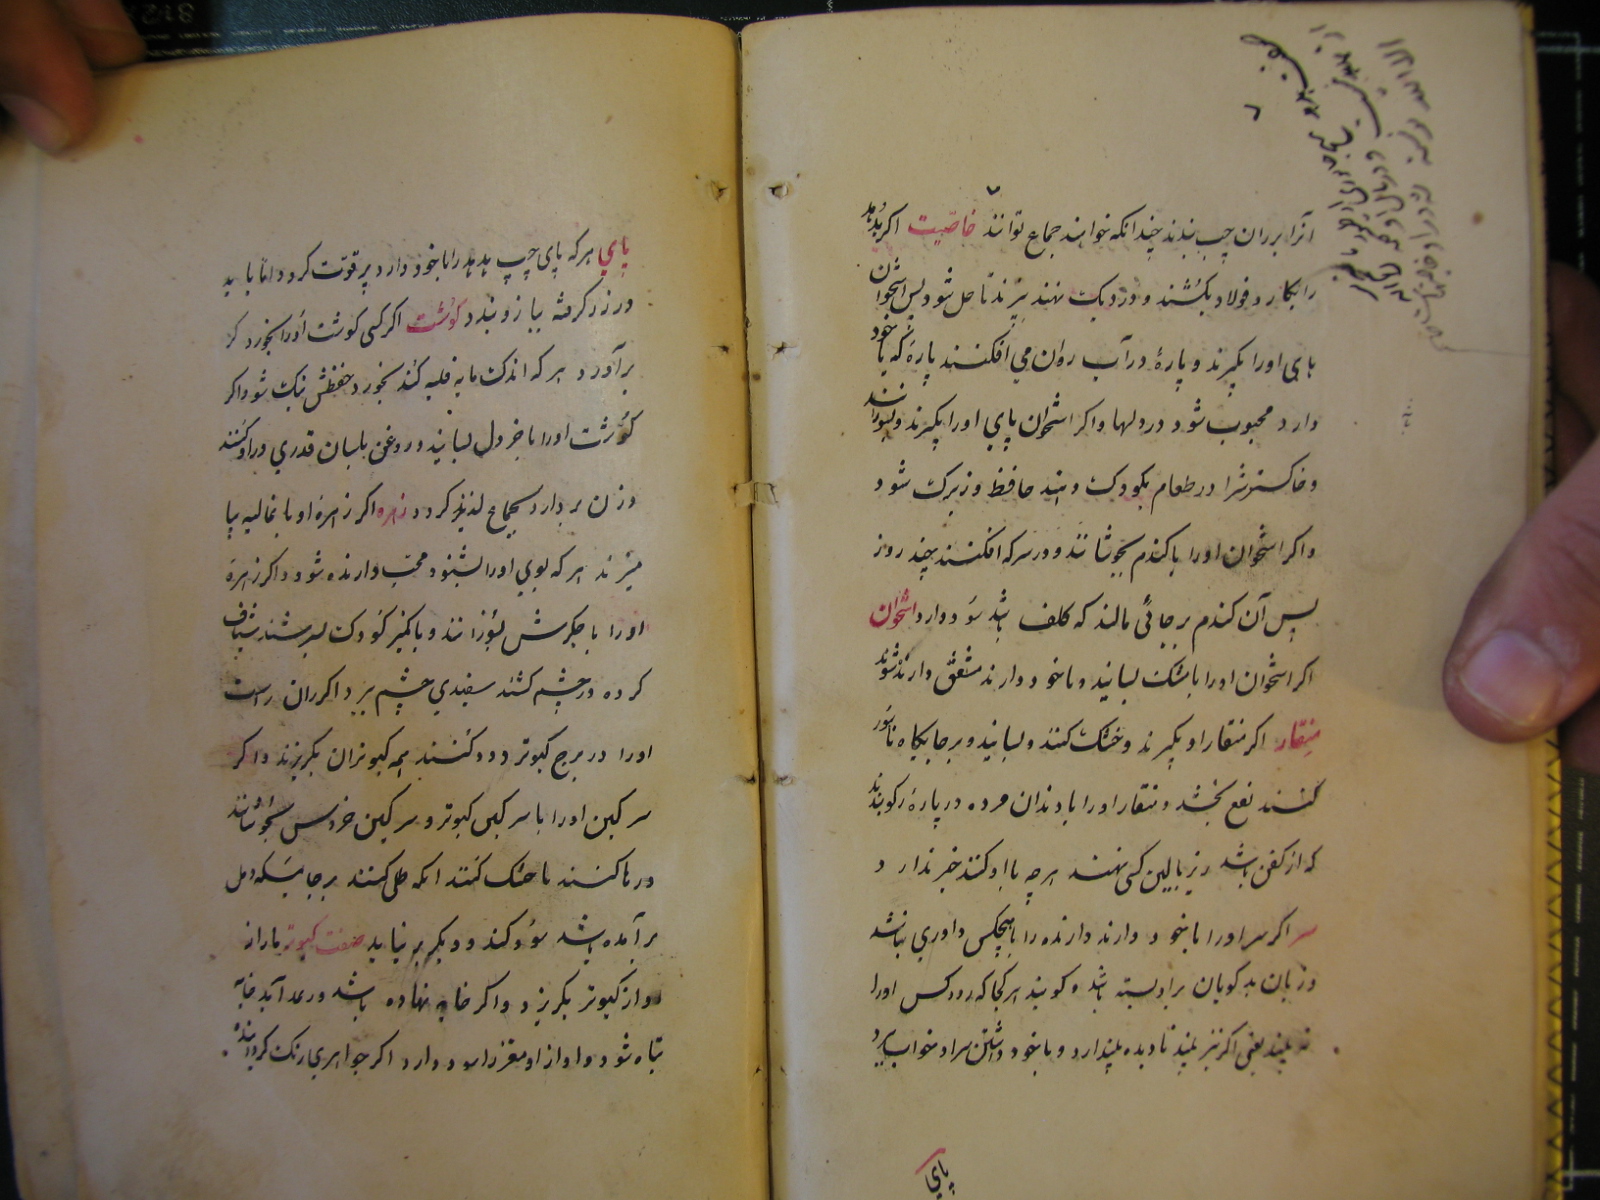 آنرا بر ران چپ بندند چندانکه خواهند جماع توانند خاصیت اکر هدهد
را بکارد فولاد بکشند و در دیک نهند پزند تا حل شود پس استخوان
های اورا بکیرند و پارهٔ در آب روان می افکنند پارهٔ که با خود
دارد محبوب شود در دلها و اکر استخوان پای اورا بکیرند و بسوزانند
و خاکسترش را در طعام بکودک دهند حافظ و زیرک شود
و اکر استخوان اورا با کندم بجوشانند و در سرکه افکنند چند روز
پس آن کندم بر جائی مالند که کلف باشد سود دارد استخوان
اکر استخوان اورا با مشک بسایند و با خود دارند مشفق دارنده شوند
منقار اکر منقار او بکیرند و خشک کنند و بسایند و بر جایکاه ناسور
کنند نفع بخشد و منقار اورا با دندان مرده در پارهٔ رکو بندند
که از کفن باشد زیر بالین کسی نهند هر چه با او کنند خبر ندارد
سر اکر سر اورا با خود دارند دارنده را با هیچکس داوری نباشد
و زبان بدکویان بر او بسته باشد و کویند هر کجا که رود کس اورا
نه بیند یعنی اکر نیز بیند نادیده پندارد و با خود داشتن سر او خواب ببرد
پای
پای هر که پای چپ هدهد را با خود دارد پر قوت کردد اما باید
در زر کرفته ببازو بندد کوشت اکر کسی کوشت اورا بخورد کر
برآورد هر که اندک مایه قلیه کند بخورد حفظش نیک شود و اکر
کوشت اورا با خردل بسایند و روغن بلسان قدری درو کنند
وزن بردارد بجماع لذیذ کردد زهره اکر زهرهٔ او با غالیه بیا
میزند هر که بوی اورا بشنود محب دارنده شود و اکر زهرهٔ
اورا با جکرش بسوزانند و با کمیز کودک بسرشند شیاف
کرده در چشم کشند سفیدی چشم ببرد اکر ران راست
اورا در برج کبوتر دود کنند همه کبوتران بکریزند و اکر
سرکین اورا با سرکین کبوتر و سرکین خروس بجوشانند
و رها کنند تا خشک کنند انکه طلی کنند بر جائیکه دمل
برآمده باشد سود کند و دیکر بر نیاید صفت کبوتر مار از
آواز کبوتر بکریزد و اکر خایه نهاده باشد و رعد آید خایه
تباه شود و آواز او مغز را سود دارد اکر جواهری رنک کردانیده